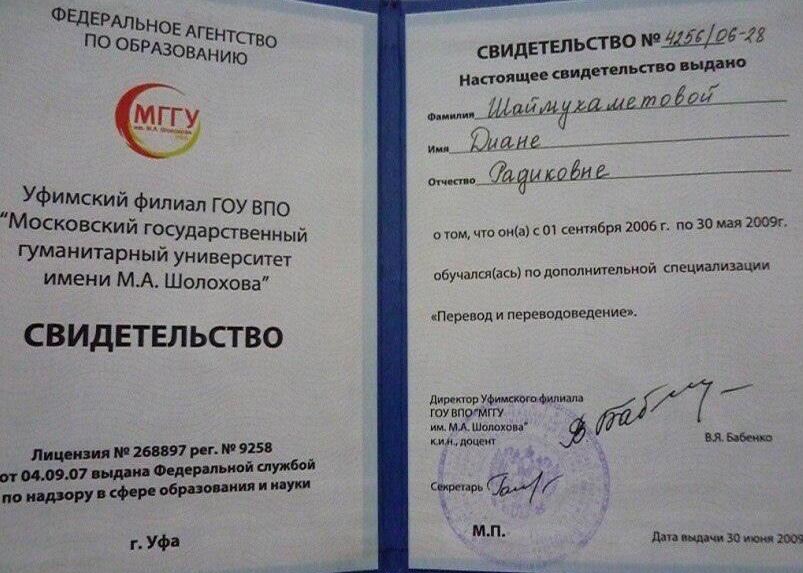 ФЕДЕРАЛЬНОЕ АГЕНТСТВО
ПО ОБРАЗОВАНИЮ
МГГУ
им. М.А. Шолохова
Уфимский филиал ГОУ ВПО
"Московский государственный
гуманитарный университет
имени М.А. Шолохова"
СВИДЕТЕЛЬСТВО
Лицензия № 268897 рег. № 9258
от 04.09.07 выдана Федеральной службой
по надзору в сфере образования и науки
г. Уфа
СВИДЕТЕЛЬСТВО № 4256/06-28
Настоящее свидетельство выдано
Фамилия Шаймухаметовой
Имя Диане
Отчество Радиковне
о том, что он(а) с 01 сентября 2006 г. по 30 мая 2009г.
обучался(ась) по дополнительной специализации
«Перевод и переводоведение».
Директор Уфимского филиала
ГОУ ВПО "МГГУ
им. М.А. Шолохова"
к.и.н., доцент
В.Я. Бабенко
Секретарь
М.П.
Дата выдачи 30 июня 2009